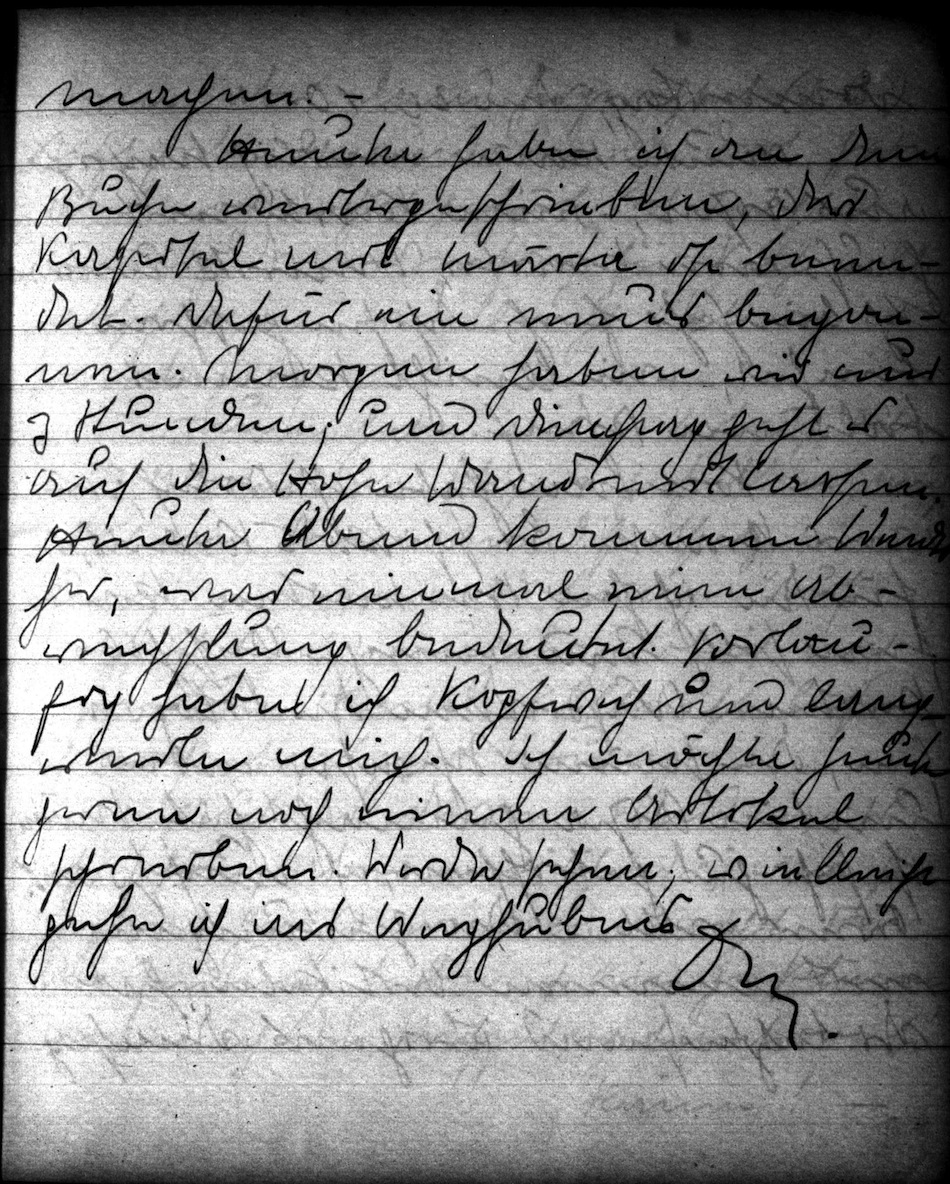 machen. –
Heute habe ich an dem
Buche weitergeschrieben, das
Kapitel mit Märta ist been-
det. Dafür ein neues begon-
nen. Morgen haben wir nur
3 Stunden, und Dienstag geht es
auf die Hohe Wand mit
Heute Abend kommen
her, was einmal eine Ab-
wechslung bedeutet. Vorläu-
fig habe ich Kopfweh und lang-
weile mich. Ich möchte heute
gerne noch einen Artikel
schreiben. Werde sehen, vielleicht
gehe ich ins